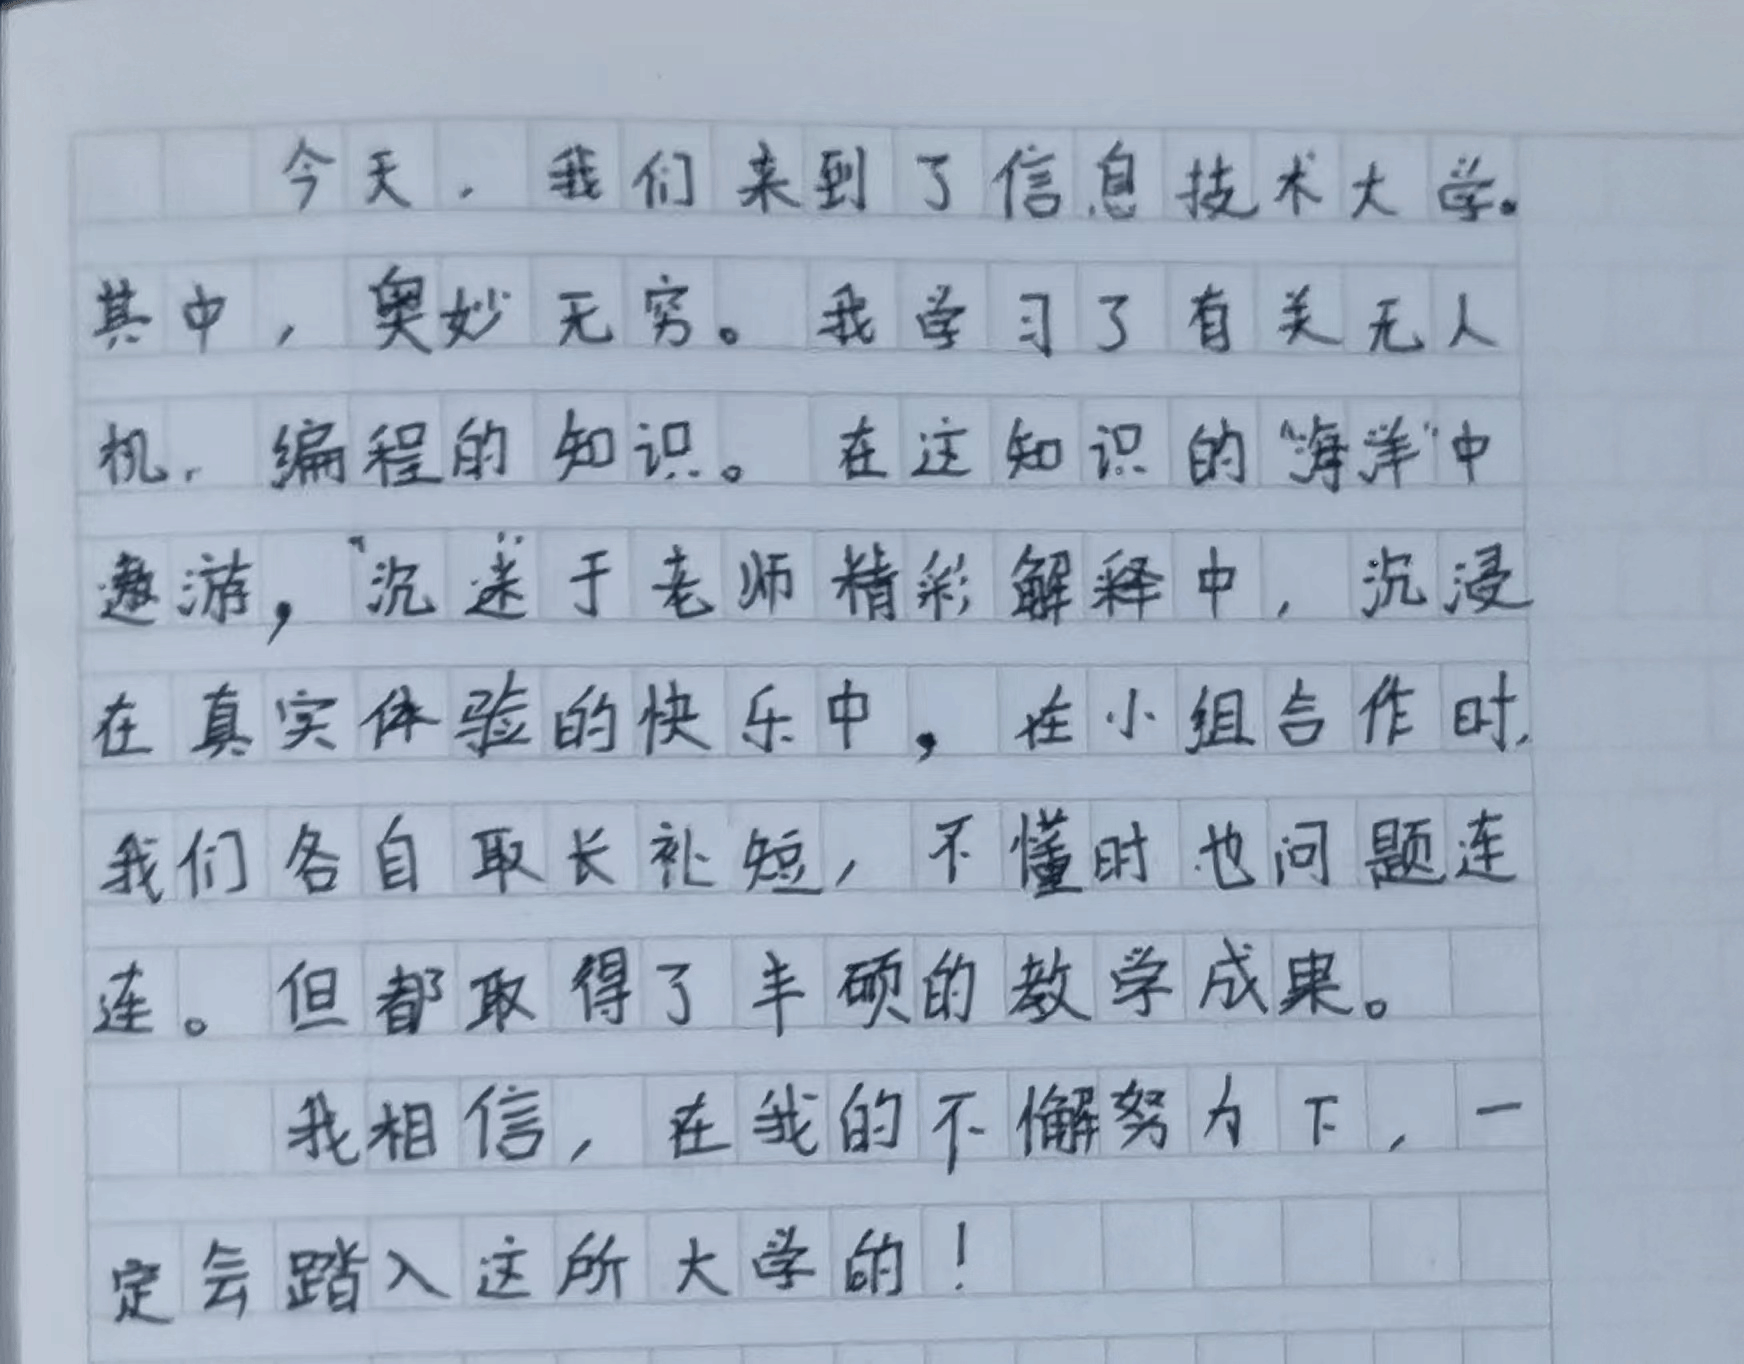 今天，我们来到了信息技术大学。
其中，奥妙无穷。我学习了有关无人
机，编程的知识。在这知识的“海洋”中
遨游，“沉迷”于老师精彩解释中，沉浸
在真实体验的快乐中，在小组合作时，
我们各自取长补短，不懂时也问题连
连。但都取得了丰硕的教学成果。
我相信，在我的不懈努力下，一
定会踏入这所大学的！